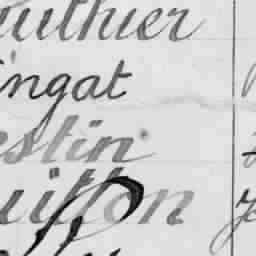 authier
ingat
estin
uitton